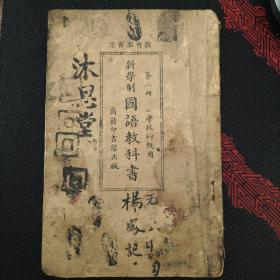 教育部審定
小學校初級用
第二冊
新學制國語教科書
商務印書館出版
沐恩堂
楊
記